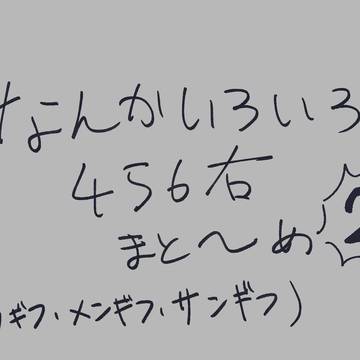 なんかいろいろ
456右
まと〜め 2
ギフ・メンギフ・サンギフ)